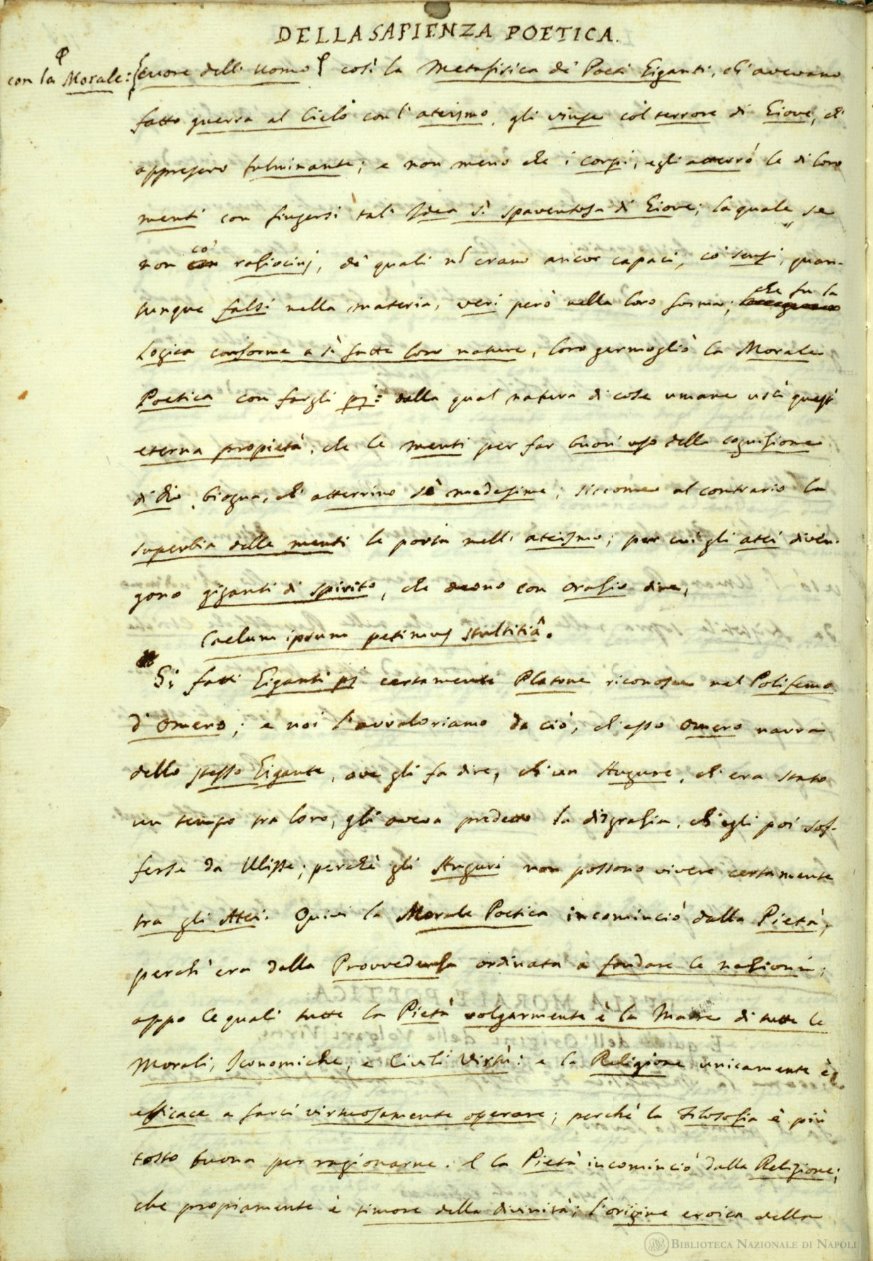 DELLA SAPIENZA POETICA.
con la Morale: cuore dell' Uomo così la Metafisica de' Poeti Giganti, ch' avevano
fatto guerra al Cielo con l'ateismo, gli vinse col terrore di Giove, ch'
appresero fulminante; e non meno che i corpi, egli atterrò le di loro
menti con fingersi tal' Idea sì spaventosa di Giove; la quale, se
non co' raziocinj, de' quali nō erano ancor capaci, co' sensi, quan-
tunque falsi nella materia, veri però nella loro forma; che fu la
Logica conforme a sì fatte loro nature, loro germogliò la Morale
Poetica con fargli pj: dalla qual natura di cose umane uscì quest'
eterna propietà, che le menti per far buon' uso della cognizione
di Dio, bisogna, ch' atterrino sè medesime; siccome al contrario la
superbia delle menti le porta nell' ateismo; per cui gli atei diven-
gono giganti di spirito, che deono con Orazio dire,
Caelum ipsum petimus stultitiâ.
Sì fatti Giganti pj certamente Platone riconosce nel Polifemo
d'Omero; e noi l'avvaloriamo da ciò, ch'esso Omero narra
dello stesso Gigante, ove gli fa dire, ch'un Augure, ch'era stato
un tempo tra loro, gli aveva predetto la disgrazia, ch'egli poi sof-
ferse da Ulisse; perchè gli Auguri non possono vivere certamente
tra gli Atei. Quivi la Morale Poetica incominciò dalla Pietà,
perch' era dalla Provvedenza ordinata a fondare le nazioni;
appo le quali tutte la Pietà volgarmente è la Madre di tutte le
Morali, Iconomiche, e Civili Virtù: e la Religione unicamente è
efficace a farci virtuosamente operare; perchè la Filosofia è più
tosto buona per ragionarne. E la Pietà incominciò dalla Religione;
che propiamente è timore della divinità; l'origine eroica della
BIBLIOTECA NAZIONALE DI NAPOLI